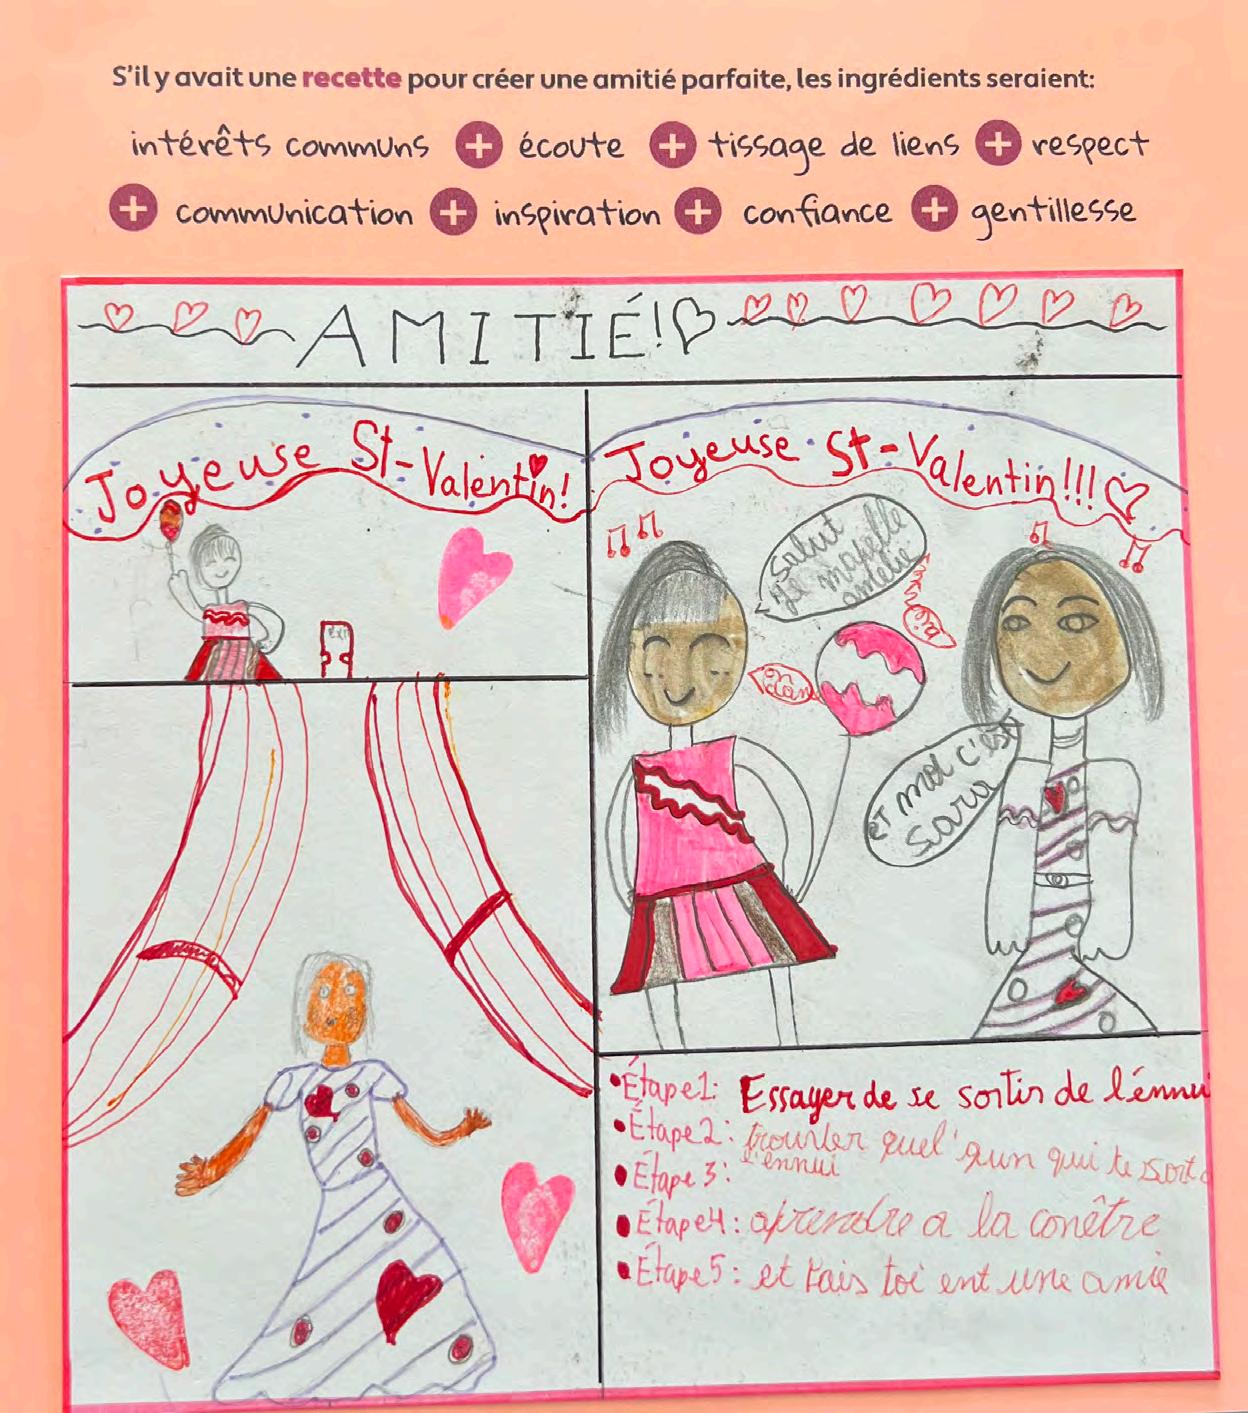 S'il y avait une recette pour créer une amitié parfaite, les ingrédients seraient:
intérêts communs + écoute + tissage de liens + respect
+ communication + inspiration + confiance + gentillesse
AMITIÉ!
Joyeuse St-Valentin!
EXIT
Joyeuse St-Valentin!!!
Salut
Je mapelle
amélie
aie
on
dans
et moi c'est
sara
•Étape1: Essayer de se sortir de l'énnui
•Étape2: trourler quel'qun qui te sort
•Étape3: l'ennui
•Étape4: aprendre a la conêtre
•Étape5: et fais toi ent une amie